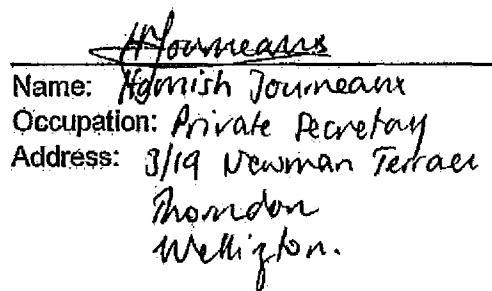 HJourneaux
Name: Hamish Journeaux
Occupation: Private Secretary
Address: 3/19 Newman Terrace
Thorndon
Wellington.